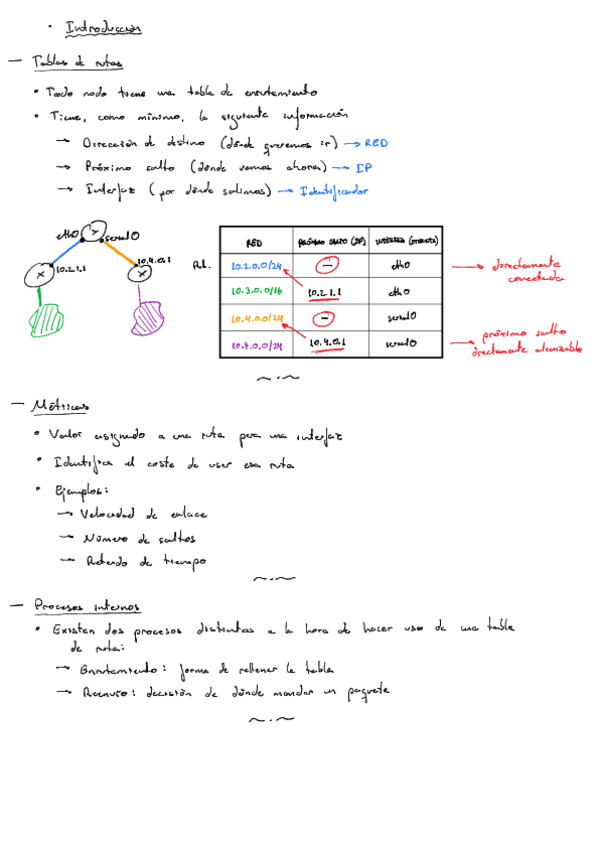 • Introducción
— Tablas de rutas
• Todo nodo tiene una tabla de enrutamiento
• Tiene, como mínimo, la siguiente información
→ Dirección de destino (dónde queremos ir) → RED
→ Próximo salto (dónde vamos ahora) → IP
→ Interfaz (por dónde salimos) → Identificador
eth0 serial0
10.2.1.1 10.4.0.1
RED PRÓXIMO SALTO (IP)
10.2.0.0/24 — eth0 → directamente conectada
10.3.0.0/16 10.2.1.1 eth0
10.4.0.0/24 — serial0
10.7.0.0/24 10.4.0.1 serial0 → próximo salto directamente alcanzable
— Métricas
• Valor asignado a una ruta para una interfaz
• Identifica el coste de usar esa ruta
• Ejemplos:
→ Velocidad de enlace
→ Número de saltos
→ Retardo de tiempo
— Procesos internos
• Existen dos procesos distintos a la hora de hacer uso de una tabla
de ruta:
→ Enrutamiento: forma de rellenar la tabla
→ Reenvío: decisión de dónde mandar un paquete